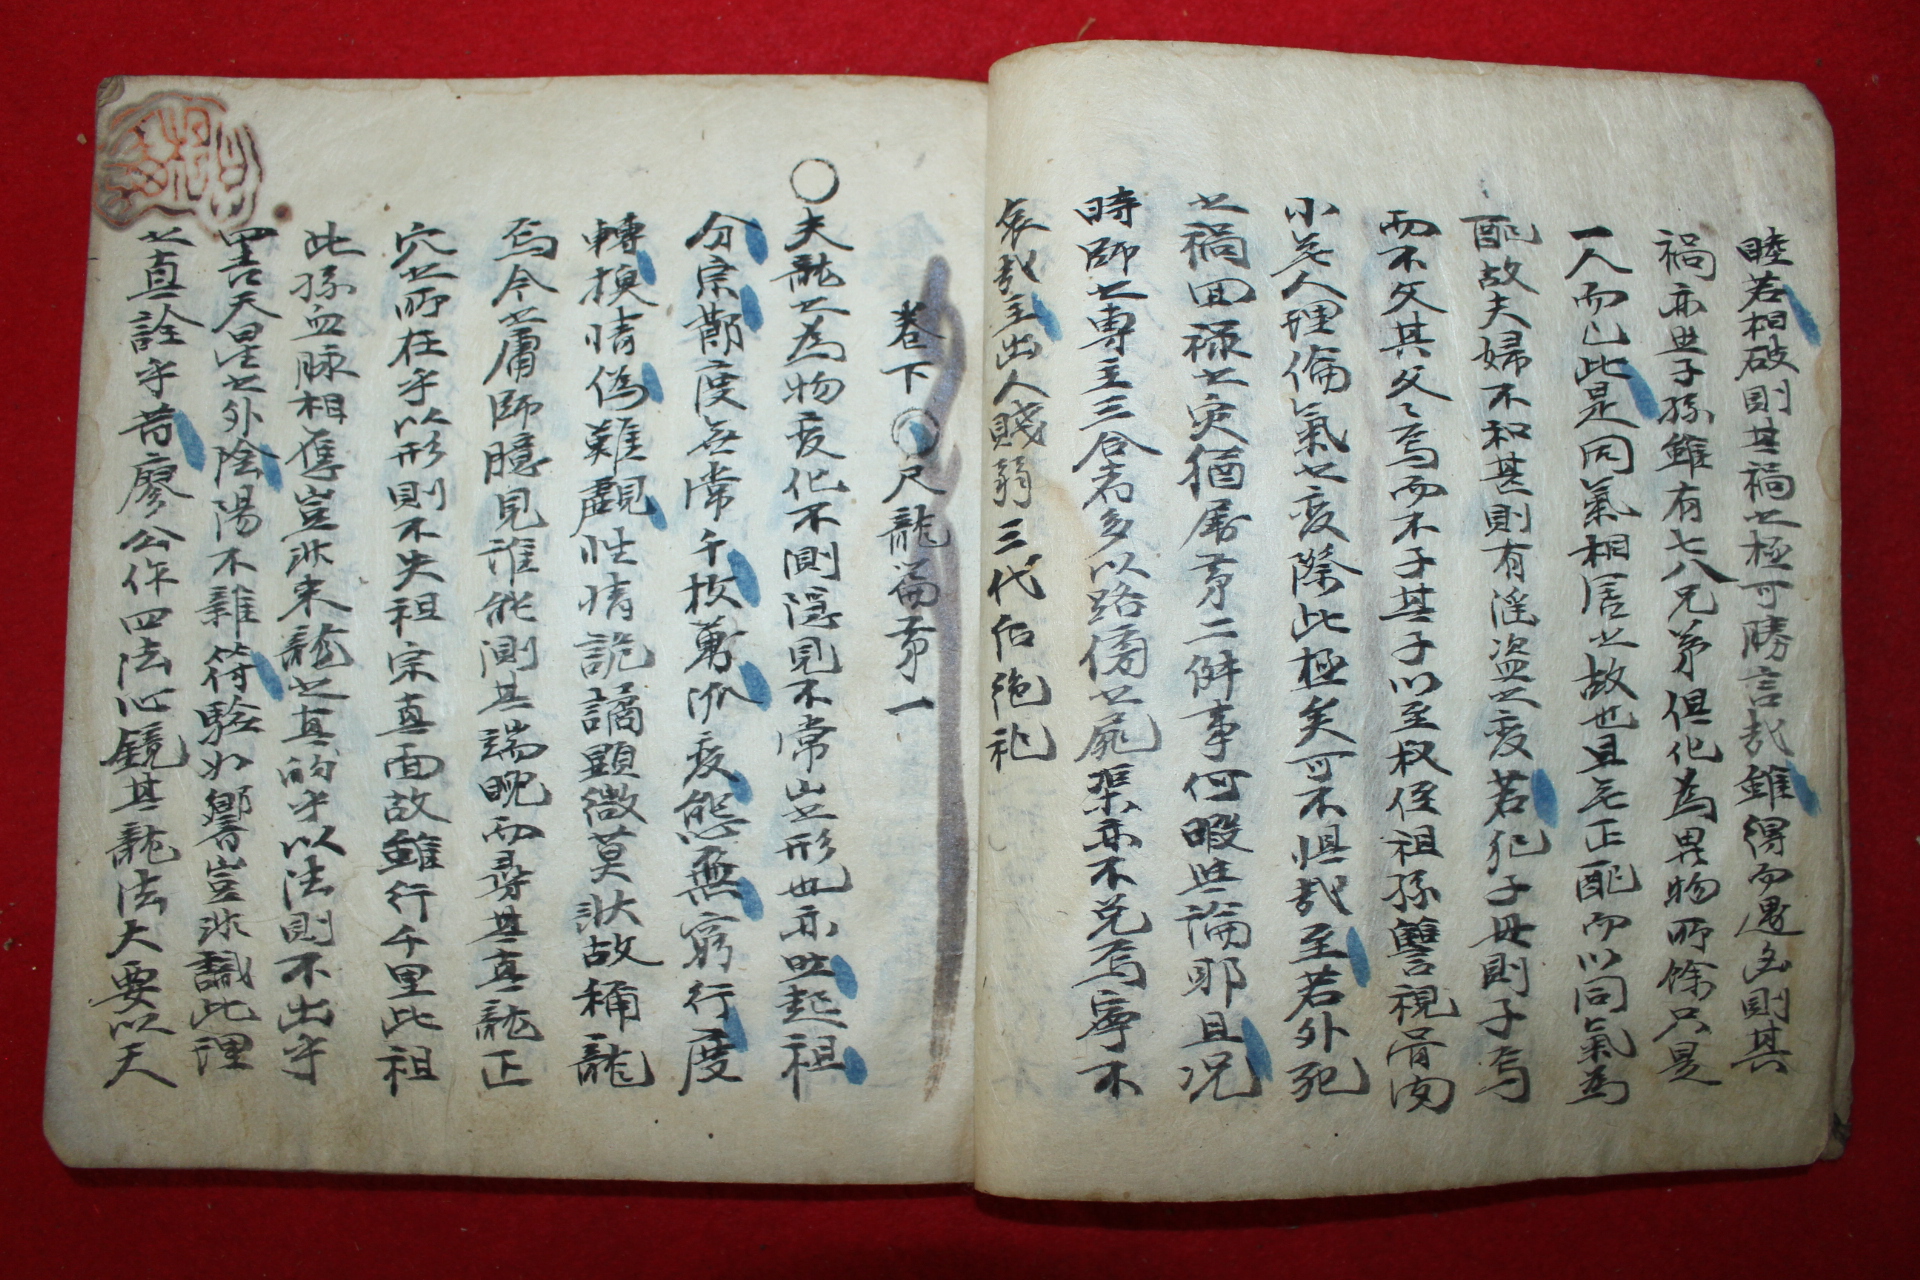 睦若相破則其禍之極可勝言哉雖得而遇凶則其
禍亦典子孫雖有七八兄弟但化為異物所餘只是
一人而已此是同氣相居之故也且无正配而以同氣為
配故夫婦不和甚則有淫盗之变若犯子母則子焉
而不父其父〻焉而不子其子以至叔侄祖孫讐視骨肉
小无人理倫氣之变際此極矣可不惧哉至若外死
之禍回禄之灾猶屬第二件事何暇与論耶且况
時師之專主三合者多以路傍之屍渠亦不免焉寧不
哀哉主出人賤弱三代后絶祀
卷下◎尺龍篇第一
○夫龍之為物变化不測隱見不常山之形也亦如起祖
分宗節度无常千枝萬派变態無窮行度
轉換情偽難觀性情詭譎顕微莫状故稱龍
焉今之庸師臆見誰能測其端睨而尋其真龍正
穴之所在乎以形則不失祖宗真面故雖行千里此祖
此孫血脉相奪豈非来龍之真的乎以法則不出乎
四書天星之外陰陽不雜符驗如響豈非識此理
之真詮乎昔廖公作四法心鏡其龍法大要以天